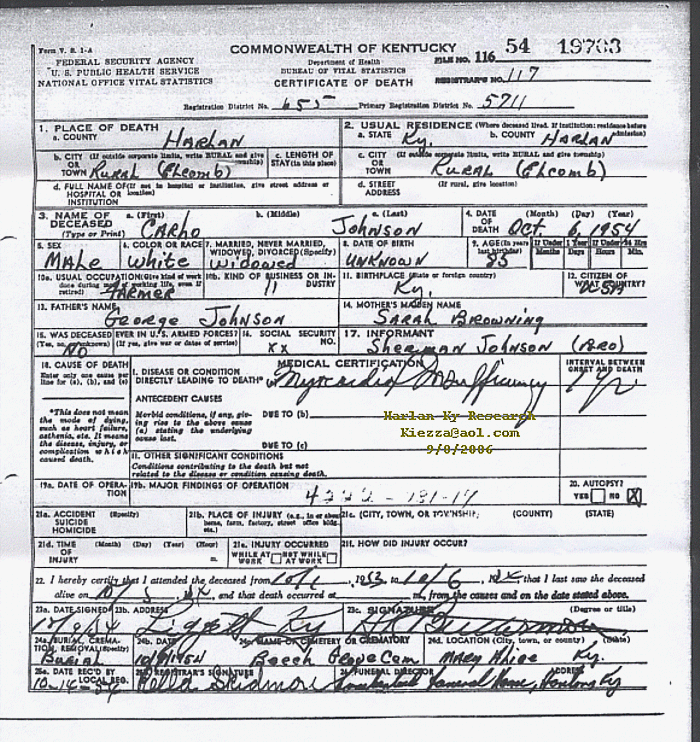 Form V. S. 1-A
COMMONWEALTH OF KENTUCKY
FILE NO. 116 54 19703
FEDERAL SECURITY AGENCY
Department of Health
U. S. PUBLIC HEALTH SERVICE
BUREAU OF VITAL STATISTICS
NATIONAL OFFICE VITAL STATISTICS
CERTIFICATE OF DEATH
REGISTRAR'S NO. 117
Registration District No. 655 Primary Registration District No. 5711
1. PLACE OF DEATH
a. COUNTY HARLAN
2. USUAL RESIDENCE (Where deceased lived. If institution: residence before admission)
a. STATE Ky. b. COUNTY HARLAN
b. CITY (If outside corporate limits, write RURAL and give township)
OR
TOWN RURAL (Elcomb)
c. LENGTH OF STAY (in this place)
c. CITY (If outside corporate limits, write RURAL and give township)
OR
TOWN RURAL (Elcomb)
d. FULL NAME OF (If not in hospital or institution, give street address or location)
HOSPITAL OR
INSTITUTION
d. STREET (If rural, give location)
ADDRESS
3. NAME OF DECEASED (Type or Print)
a. (First) b. (Middle) c. (Last)
CARLO JOHNSON
4. DATE OF DEATH (Month) (Day) (Year)
Oct. 6, 1954
5. SEX
MALE
6. COLOR OR RACE
White
7. MARRIED, NEVER MARRIED, WIDOWED, DIVORCED (Specify)
Widowed
8. DATE OF BIRTH
UNKNOWN
9. AGE (In years last birthday)
85
If Under 1 Year If Under 24 Hrs
Months Days Hours Min.
10a. USUAL OCCUPATION (Give kind of work done during most of working life, even if retired)
FARMER
10b. KIND OF BUSINESS OR INDUSTRY
11
11. BIRTHPLACE (State or foreign country)
Ky.
12. CITIZEN OF WHAT COUNTRY?
USA
13. FATHER'S NAME
George Johnson
14. MOTHER'S MAIDEN NAME
SARAH BROWNING
15. WAS DECEASED EVER IN U. S. ARMED FORCES?
(Yes, no, or unknown) (If yes, give war or dates of service)
NO
16. SOCIAL SECURITY NO.
XX
17. INFORMANT
Sherman Johnson (BRO)
18. CAUSE OF DEATH
Enter only one cause per line for (a), (b), and (c)
MEDICAL CERTIFICATION
INTERVAL BETWEEN ONSET AND DEATH
I. DISEASE OR CONDITION
DIRECTLY LEADING TO DEATH* (a) Myocardial Insufficiency 1 yr
*This does not mean the mode of dying, such as heart failure, asthenia, etc. It means the disease, injury, or complication which caused death.
ANTECEDENT CAUSES
Morbid conditions, if any, giving rise to the above cause (a) stating the underlying cause last.
DUE TO (b)
DUE TO (c)
Harlan Ky Research
Kiezza@aol.com
9/8/2006
II. OTHER SIGNIFICANT CONDITIONS
Conditions contributing to the death but not related to the disease or condition causing death.
19a. DATE OF OPERATION
19b. MAJOR FINDINGS OF OPERATION
4222 - 131-17
20. AUTOPSY?
YES NO X
21a. ACCIDENT SUICIDE HOMICIDE (Specify)
21b. PLACE OF INJURY (e.g., in or about home, farm, factory, street, office bldg., etc.)
21c. (CITY, TOWN, OR TOWNSHIP) (COUNTY) (STATE)
21d. TIME OF INJURY (Month) (Day) (Year) (Hour) m.
21e. INJURY OCCURRED
WHILE AT WORK NOT WHILE AT WORK
21f. HOW DID INJURY OCCUR?
22. I hereby certify that I attended the deceased from 10/1, 1953, to 10/6, that I last saw the deceased
alive on 10/5, and that death occurred at m., from the causes and on the date stated above.
23a. DATE SIGNED
23b. ADDRESS
Liggett Ky
23c. SIGNATURE (Degree or title)
24a. BURIAL, CREMATION, REMOVAL (Specify)
Burial
24b. DATE
10/8/1954
24c. NAME OF CEMETERY OR CREMATORY
Beech Grove Cem
24d. LOCATION (City, town, or county) (State)
MARY Alice Ky.
25a. DATE REC'D BY LOCAL REG.
10-14-54
25b. REGISTRAR'S SIGNATURE
Della Skidmore
26. FUNERAL DIRECTOR ADDRESS
Funeral Home, Harlan, Ky